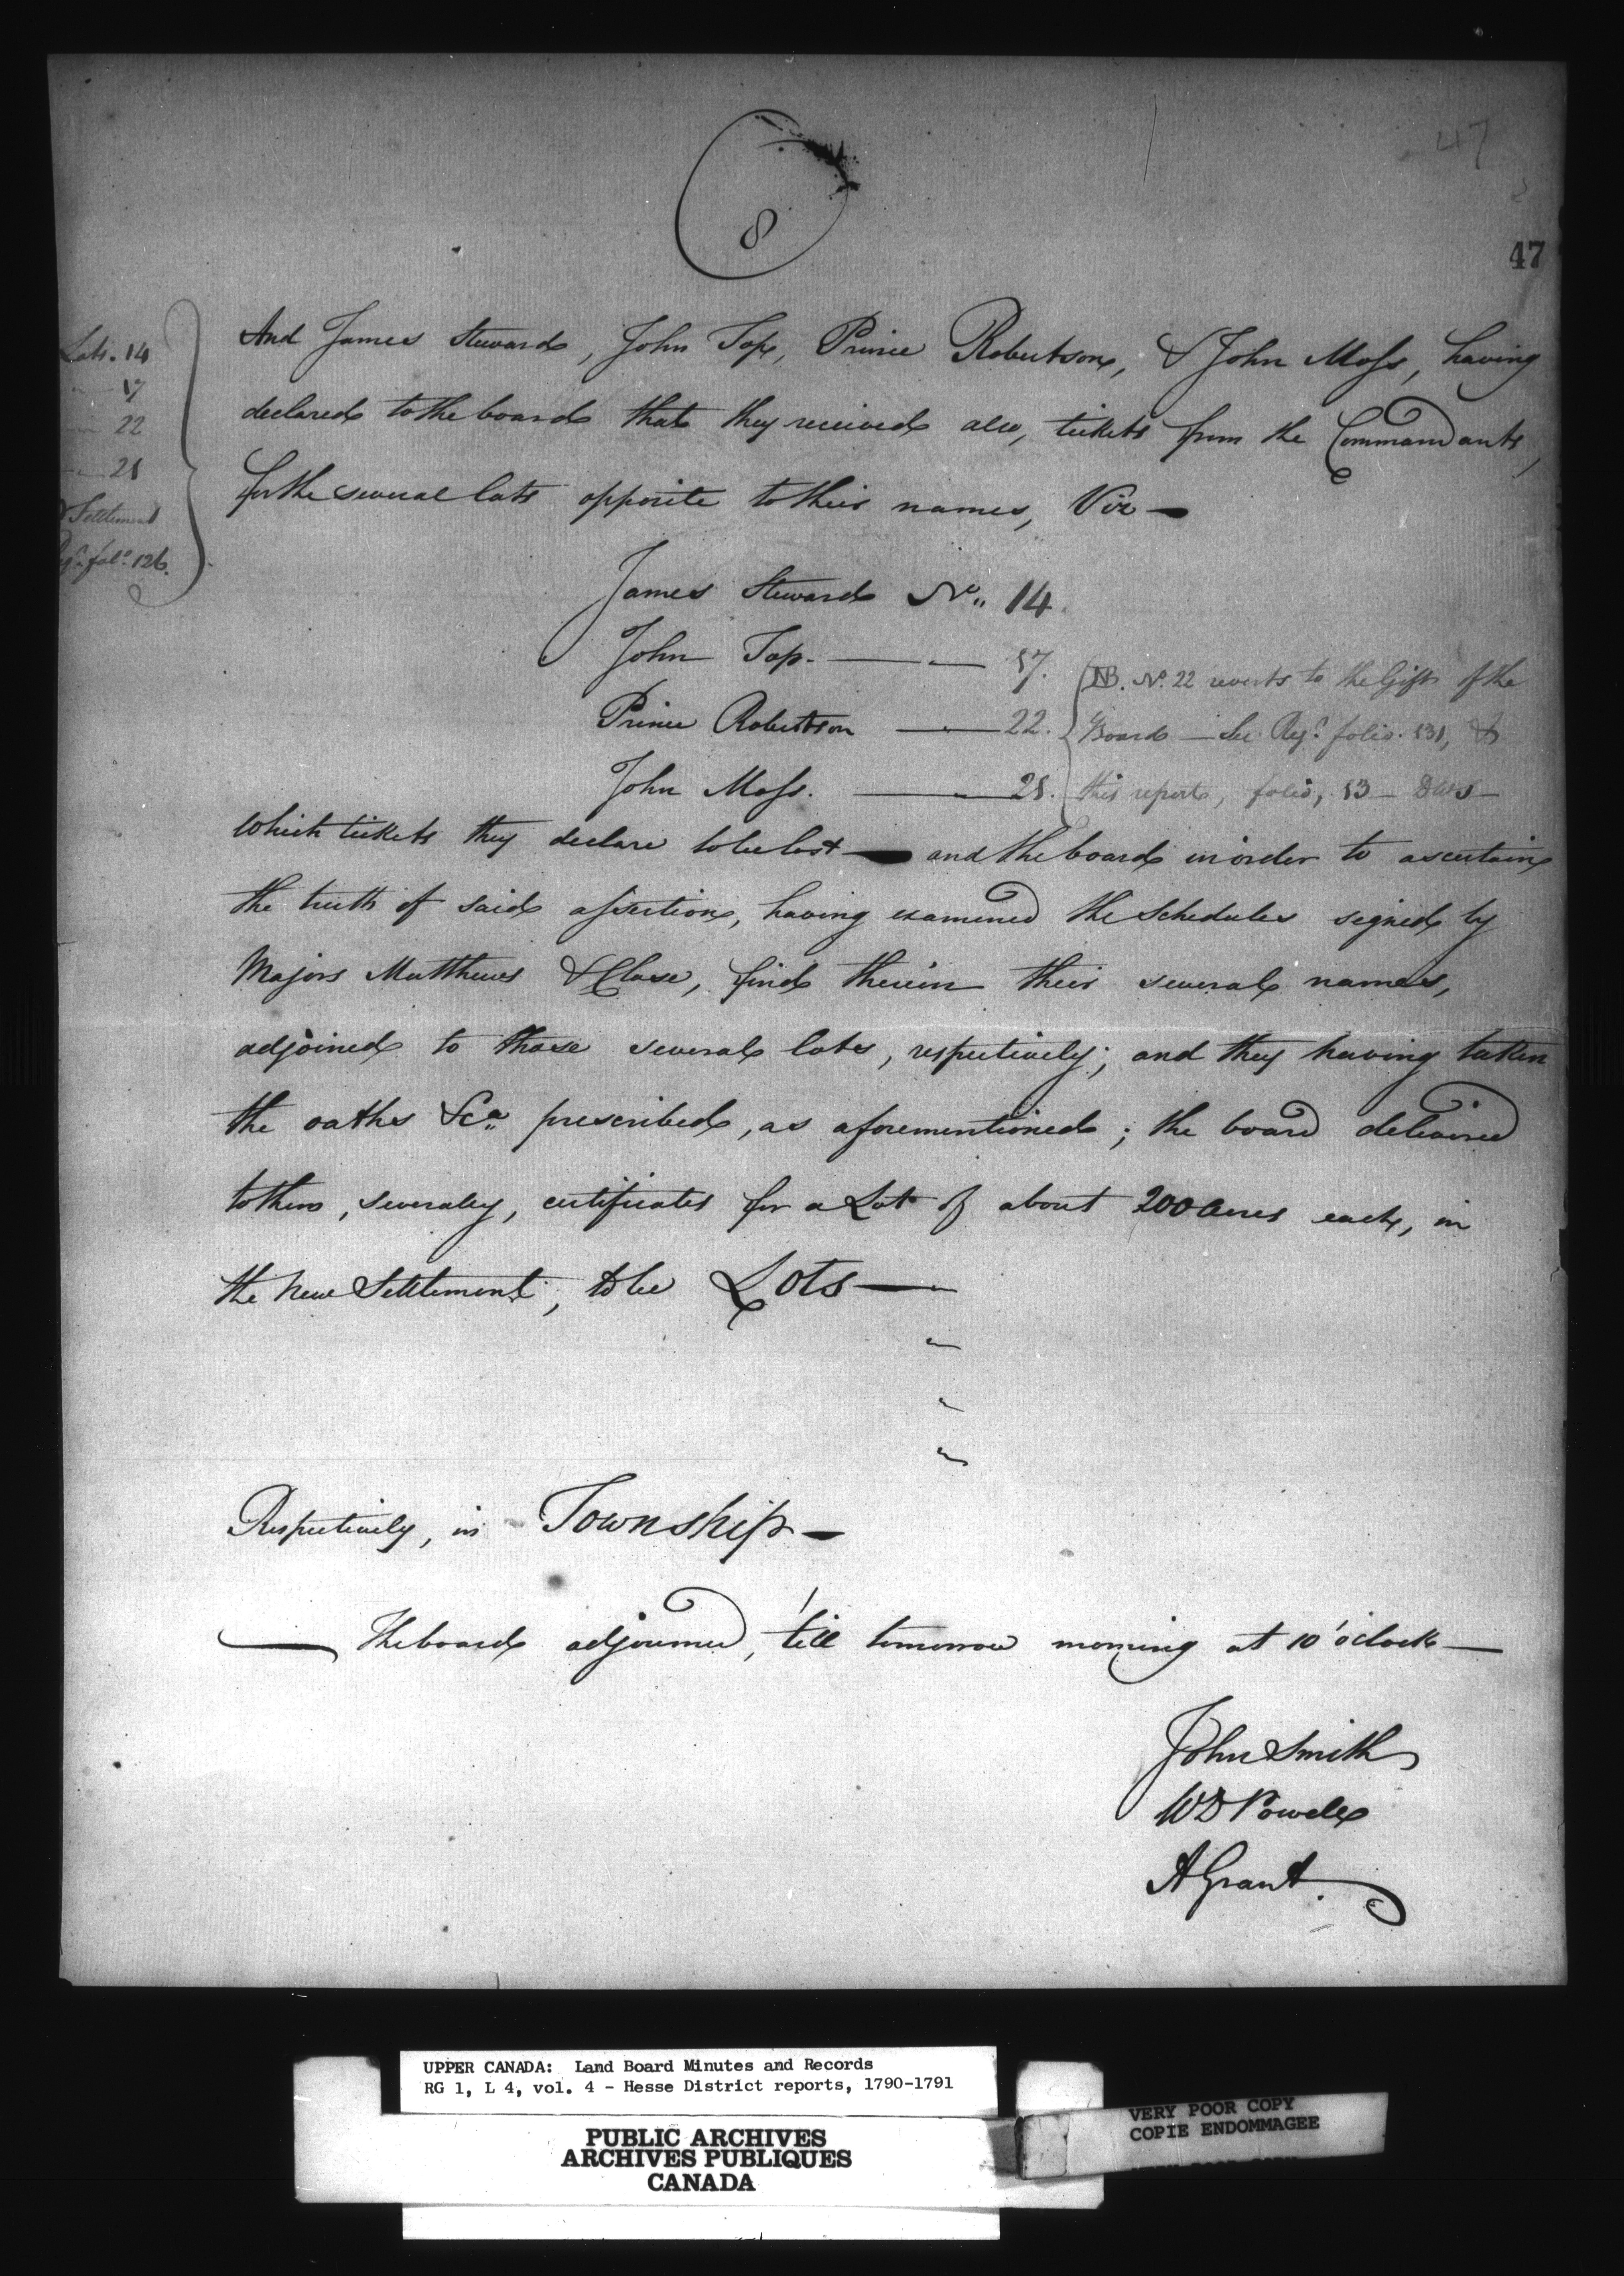 8
47
47
Lots. 14
17
22
21
Settlement
fol.º 126.
And James Steward, John Top, Prince Robertson, & John Moss, having
declared to the board that they received also, tickets from the Commandants,
for the several lots opposite to their names, Viz —
James Steward Nº 14.
John Top. — 17.
Prince Robertson — 22.
John Moss. — 21.
NB. Nº 22 reverts to the Gift of the
Board — See Regr. folio. 131, &
this report, folio, 13 —
Which tickets they declare to be lost — and the board in order to ascertain
the truth of said assertion, having examined the Schedules signed by
Majors Matthews & Close, find therein their several names,
adjoined to those several lots, respectively; and they having taken
the oaths &ca prescribed, as aforementioned; the board delivered
to them, severaly, certificates for a Lot of about 200 Acres each, in
the New Settlement, to be Lots —
Respectively, in Township —
— The board adjourned, 'till tomorrow morning at 10 o'clock —
John Smith
WD Powell
A Grant.
UPPER CANADA: Land Board Minutes and Records
RG 1, L 4, vol. 4 - Hesse District reports, 1790-1791
PUBLIC ARCHIVES
ARCHIVES PUBLIQUES
CANADA
VERY POOR COPY
COPIE ENDOMMAGEE